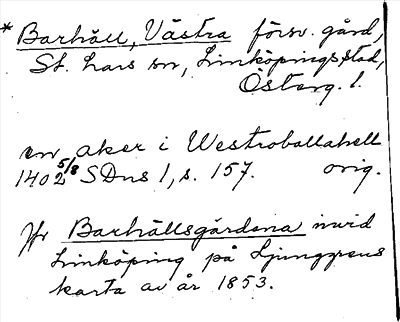 * Barhäll, Västra försv. gård,
St. Lars sn, Linköpings stad,
Österg. l.
en aker i Westroballahell
1402 5/8 SDns 1, s. 157. orig.
Jfr Barhällsgårdena invid
Linköping på Ljunggrens
karta av år 1853.